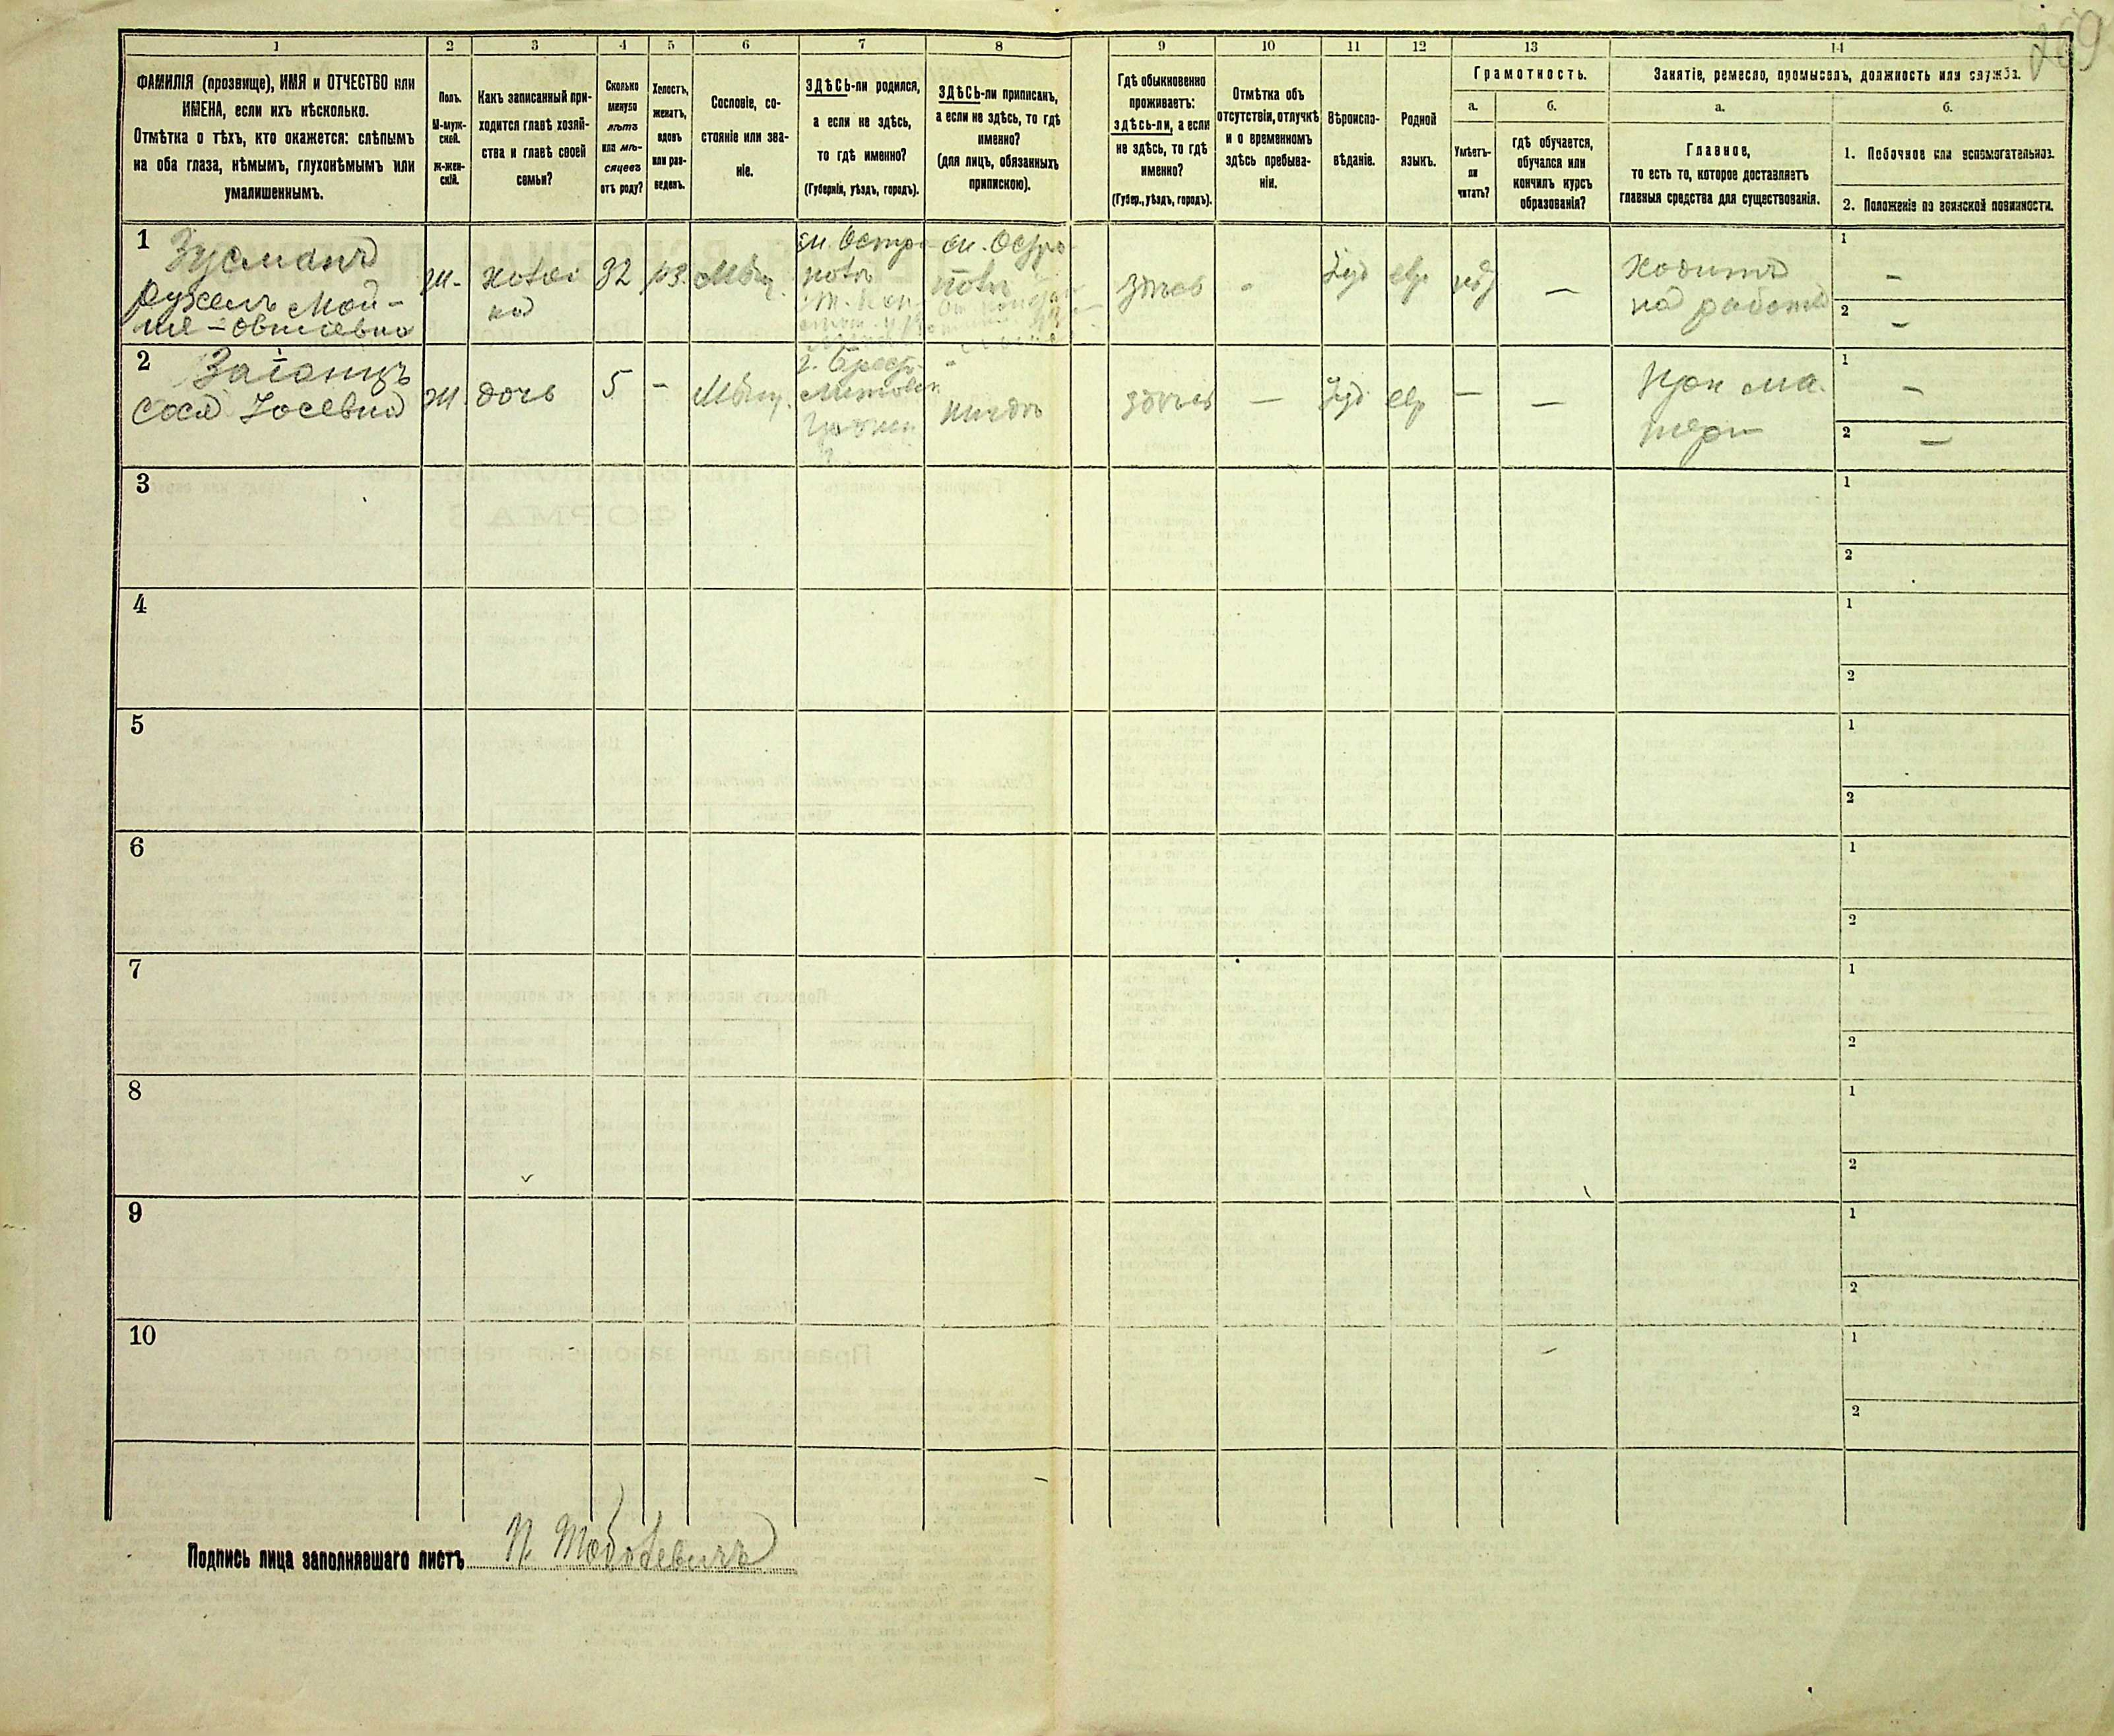 269
1
2
3
4
5
6
7
8
9
10
11
12
13
14
ФАМИЛІЯ (прозвище), ИМЯ и ОТЧЕСТВО или
ИМЕНА, если ихъ нѣсколько.
Отмѣтка о тѣхъ, кто окажется: слѣпымъ
на оба глаза, нѣмымъ, глухонѣмымъ или
умалишеннымъ.
Полъ.
М-муж-
ской.
Ж-жен-
скій.
Какъ записанный при-
ходится главѣ хозяй-
ства и главѣ своей
семьи?
Сколько
минуло
лѣтъ
или мѣ-
сяцевъ
отъ роду?
Холостъ,
женатъ,
вдовъ
или раз-
веденъ.
Сословіе, со-
стояніе или зва-
ніе.
ЗДѢСЬ-ли родился,
а если не здѣсь,
то гдѣ именно?
(Губернія, уѣздъ, городъ).
ЗДѢСЬ-ли приписанъ,
а если не здѣсь, то гдѣ
именно?
(для лицъ, обязанныхъ
припискою).
Гдѣ обыкновенно
проживаетъ:
здѣсь-ли, а если
не здѣсь, то гдѣ
именно?
(Губер., уѣздъ, городъ).
Отмѣтка объ
отсутствіи, отлучкѣ
и о временномъ
здѣсь пребыва-
ніи.
Вѣроиспо-
вѣданіе.
Родной
языкъ.
Грамотность.
а.
Умѣетъ-
ли
читать?
б.
гдѣ обучается,
обучался или
кончилъ курсъ
образованія?
Занятіе, ремесло, промыселъ, должность или служба.
а.
Главное,
то есть то, которое доставляетъ
главныя средства для существованія.
б.
1. Побочное или вспомогательное.
2. Положеніе по воинской повинности.
1
Зусманъ
Мой-
ж.
хозяй
ка
32
рз.
Мѣщ.
м. Остро
м. Остро
здѣсь
-
Іуд
евр
нѣт
—
ходитъ
на работы
1
-
2
-
2
Заганцъ
Сося Іосевна
ж.
дочь
5
-
Мѣщ.
г. Брест-
Литовск
Гродн
г.
здѣсь
—
Іуд
евр
—
—
при ма-
тери
1
-
2
—
3
1
2
4
1
2
5
1
2
6
1
2
7
1
2
8
1
2
9
1
2
10
1
2
Подпись лица заполнявшаго листъ